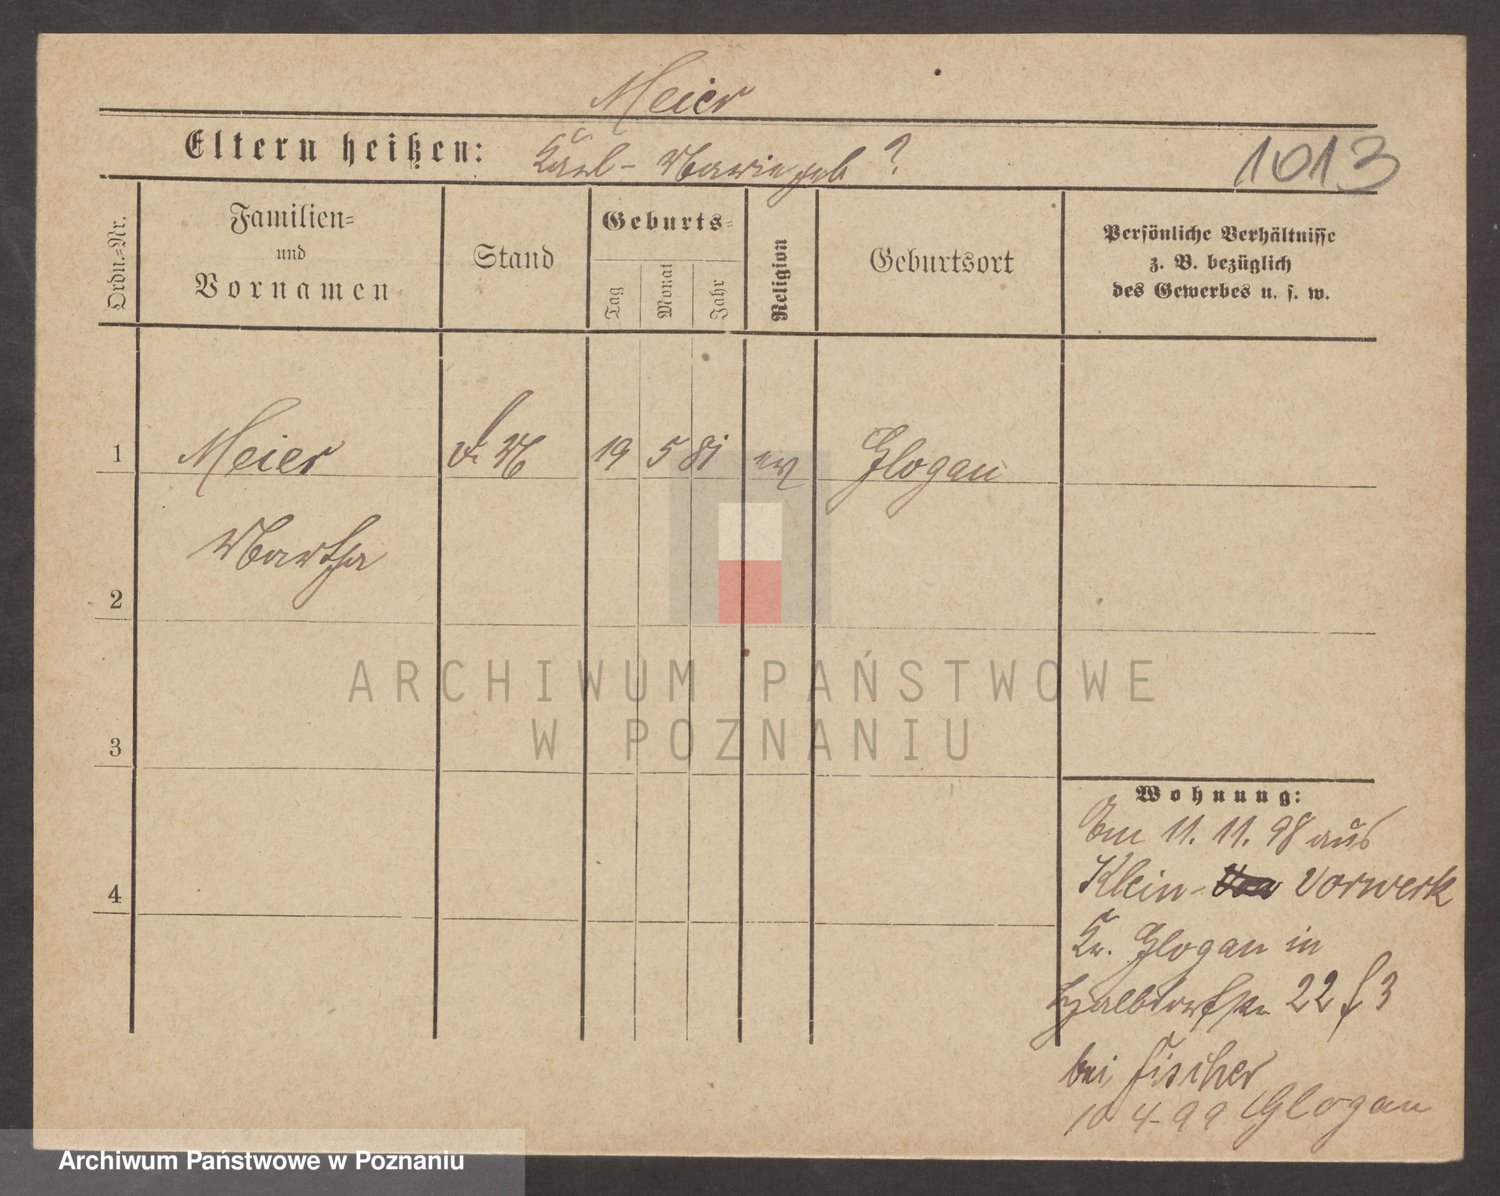 Meier
Eltern heißen: Karl - Marie geb ?
1013
Ordn.-Nr.
Familien-
und
Vornamen
Stand
Geburts-
Tag
Monat
Jahr
Religion
Geburtsort
Persönliche Verhältnisse
z. B. bezüglich
des Gewerbes u. s. w.
1 Meier 19 5 81 ev Glogau
Martha
2
3
4
Wohnung:
Am 11. 11. 98 aus
Klein- Vorwerk
Kr. Glogau in
Halbdorfstr 22
bei Fischer
10 4 - 99 Glogau
ARCHIWUM PAŃSTWOWE
W POZNANIU
Archiwum Państwowe w Poznaniu